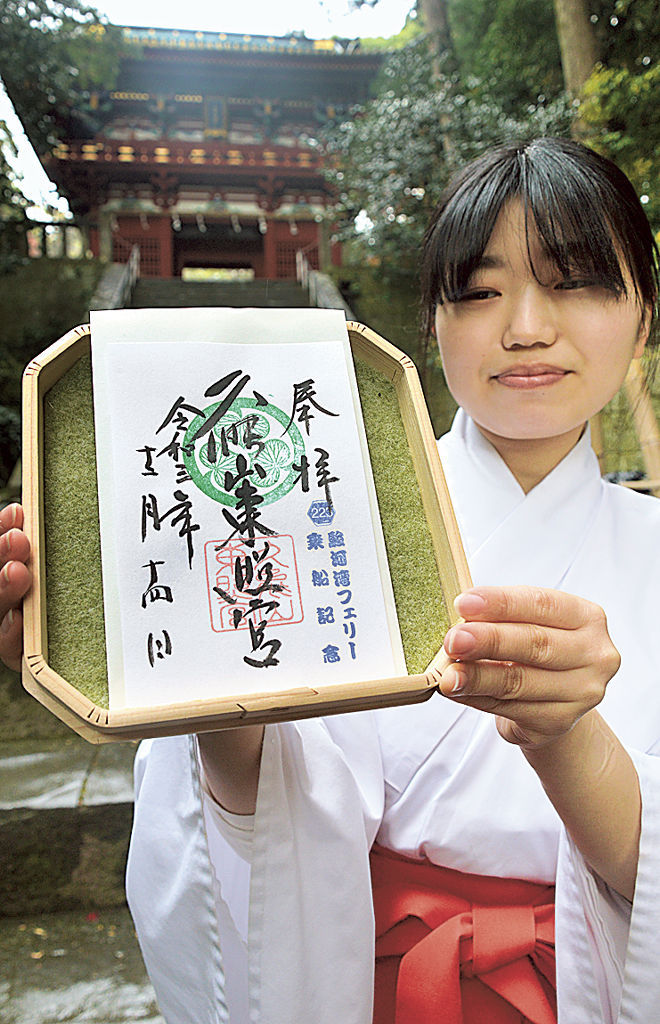 奉拝
223
駿河湾フェリー
乗船記念
久能山東照宮
令和三年
十一月十四日